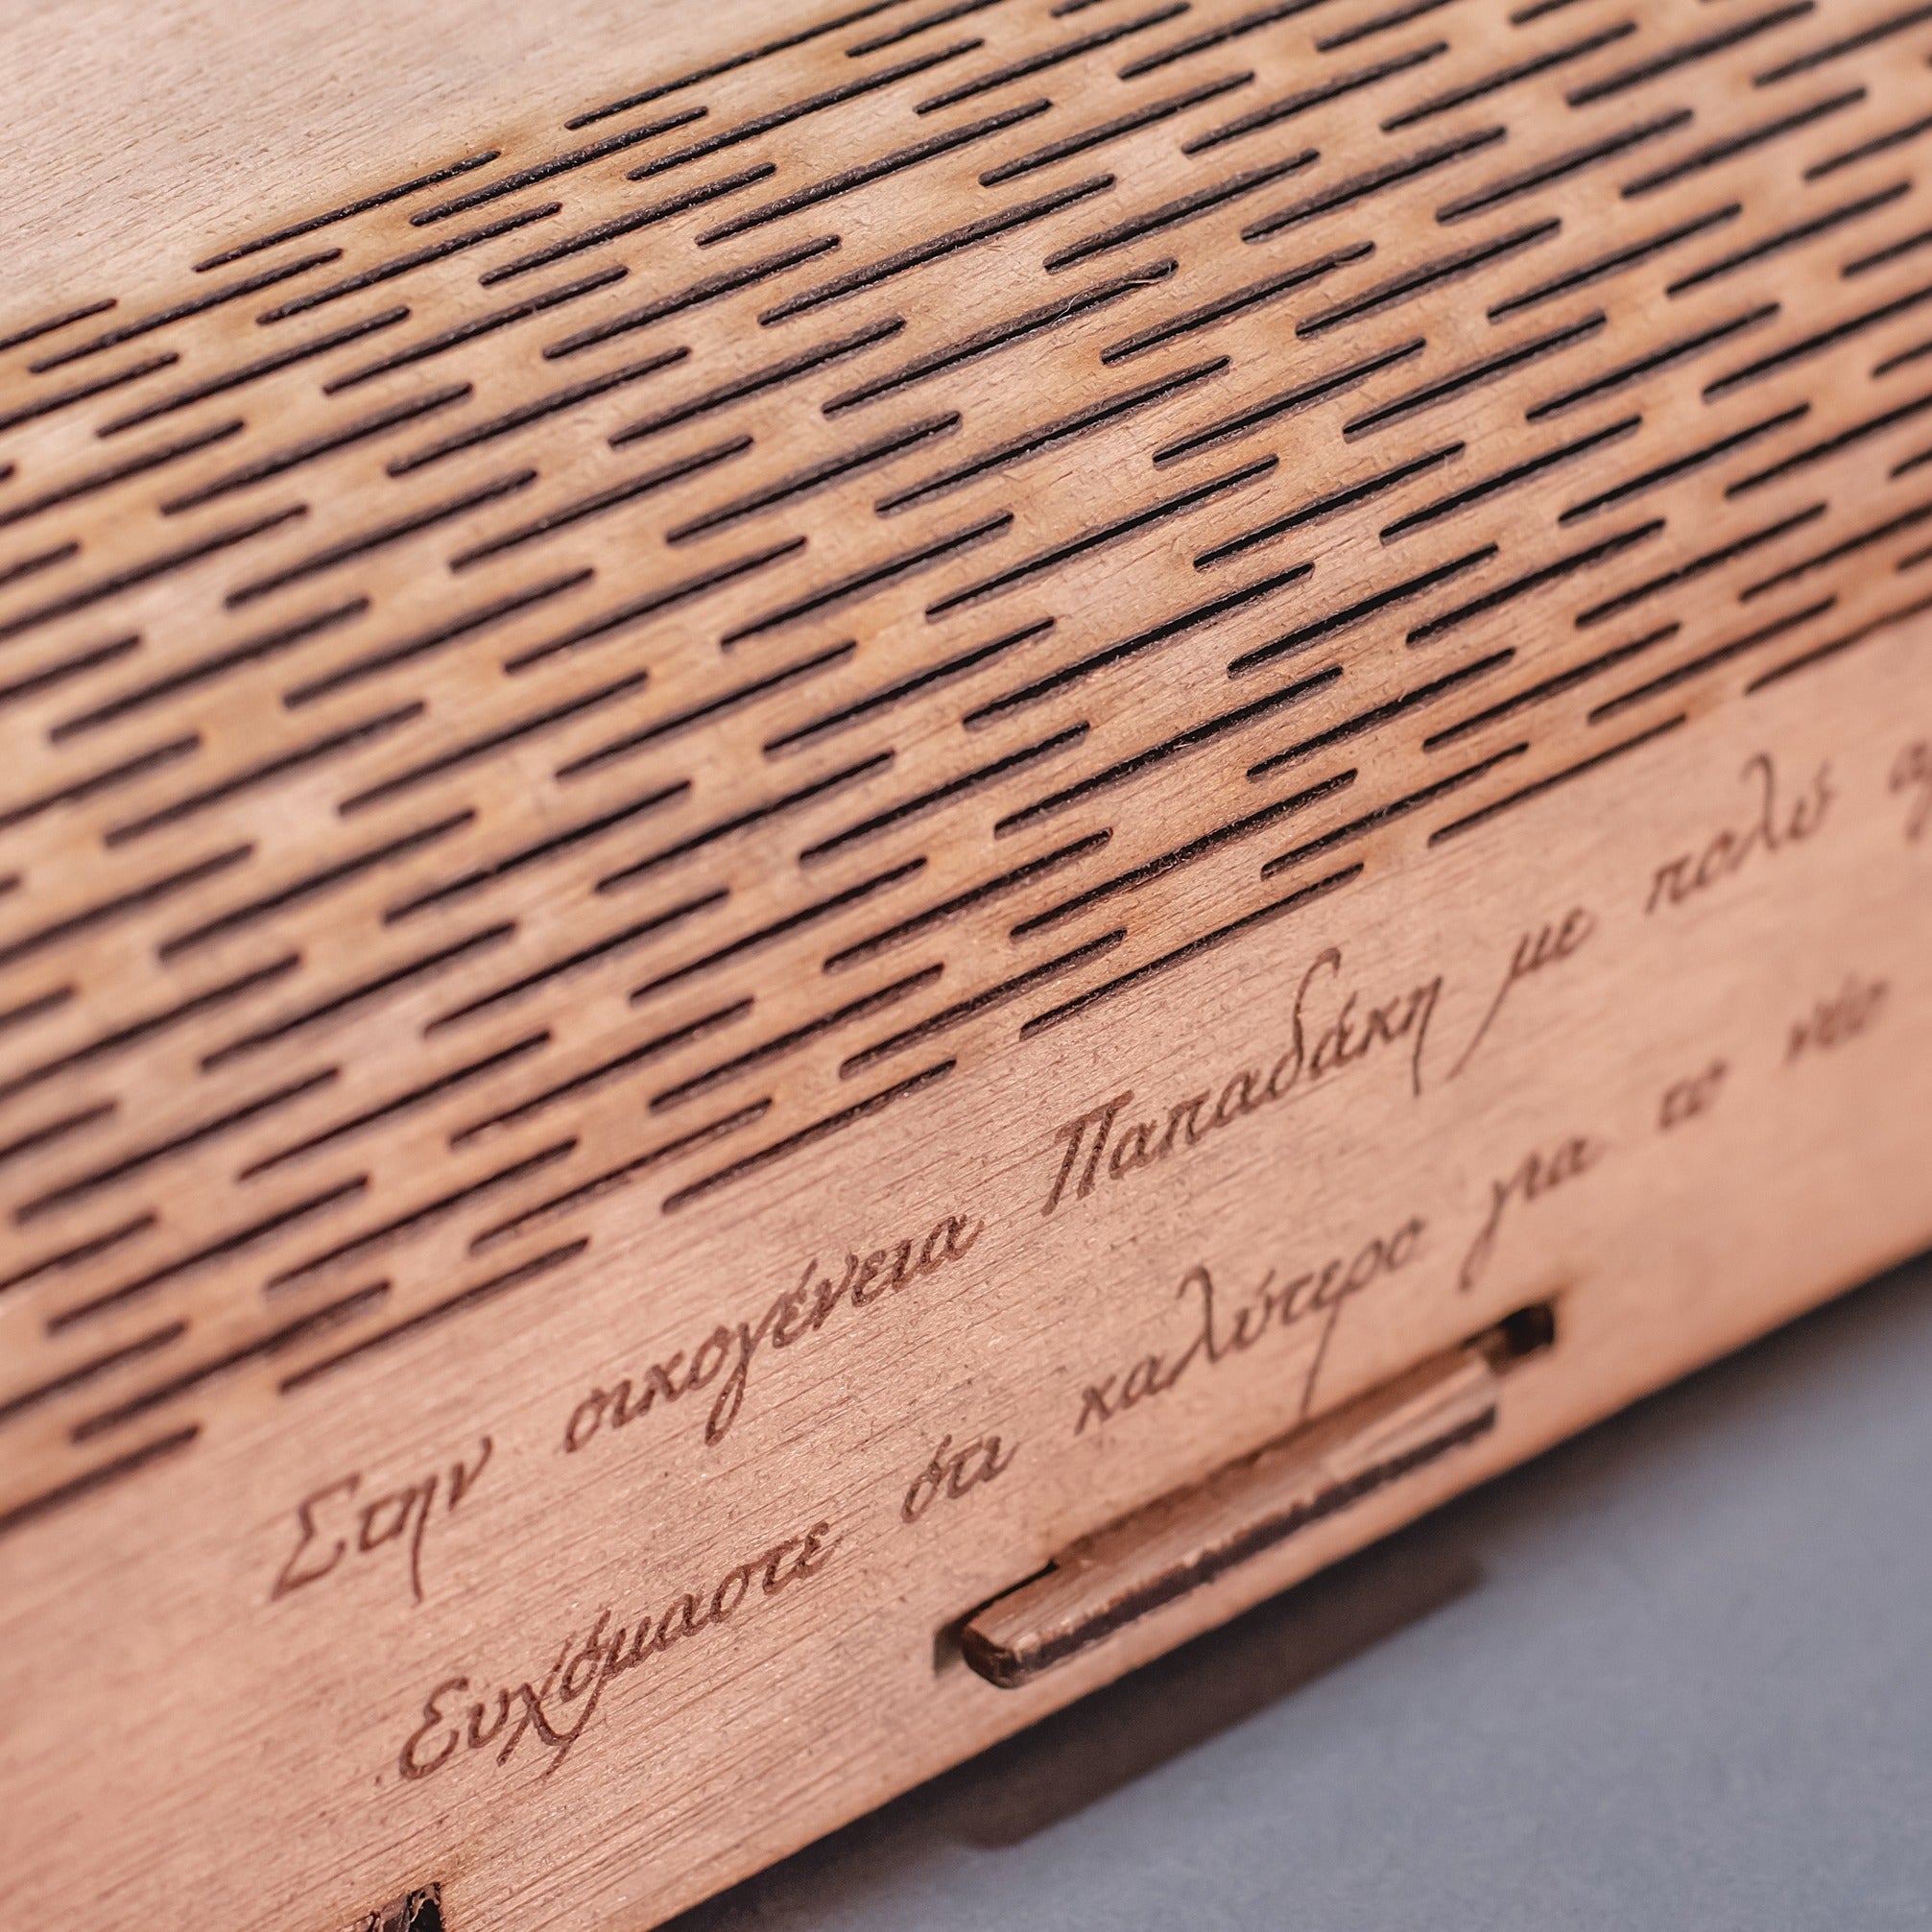 Στην οικογένεια Παπαδάκη με πολύ
Ευχόμαστε ότι καλύτερο για το νέο